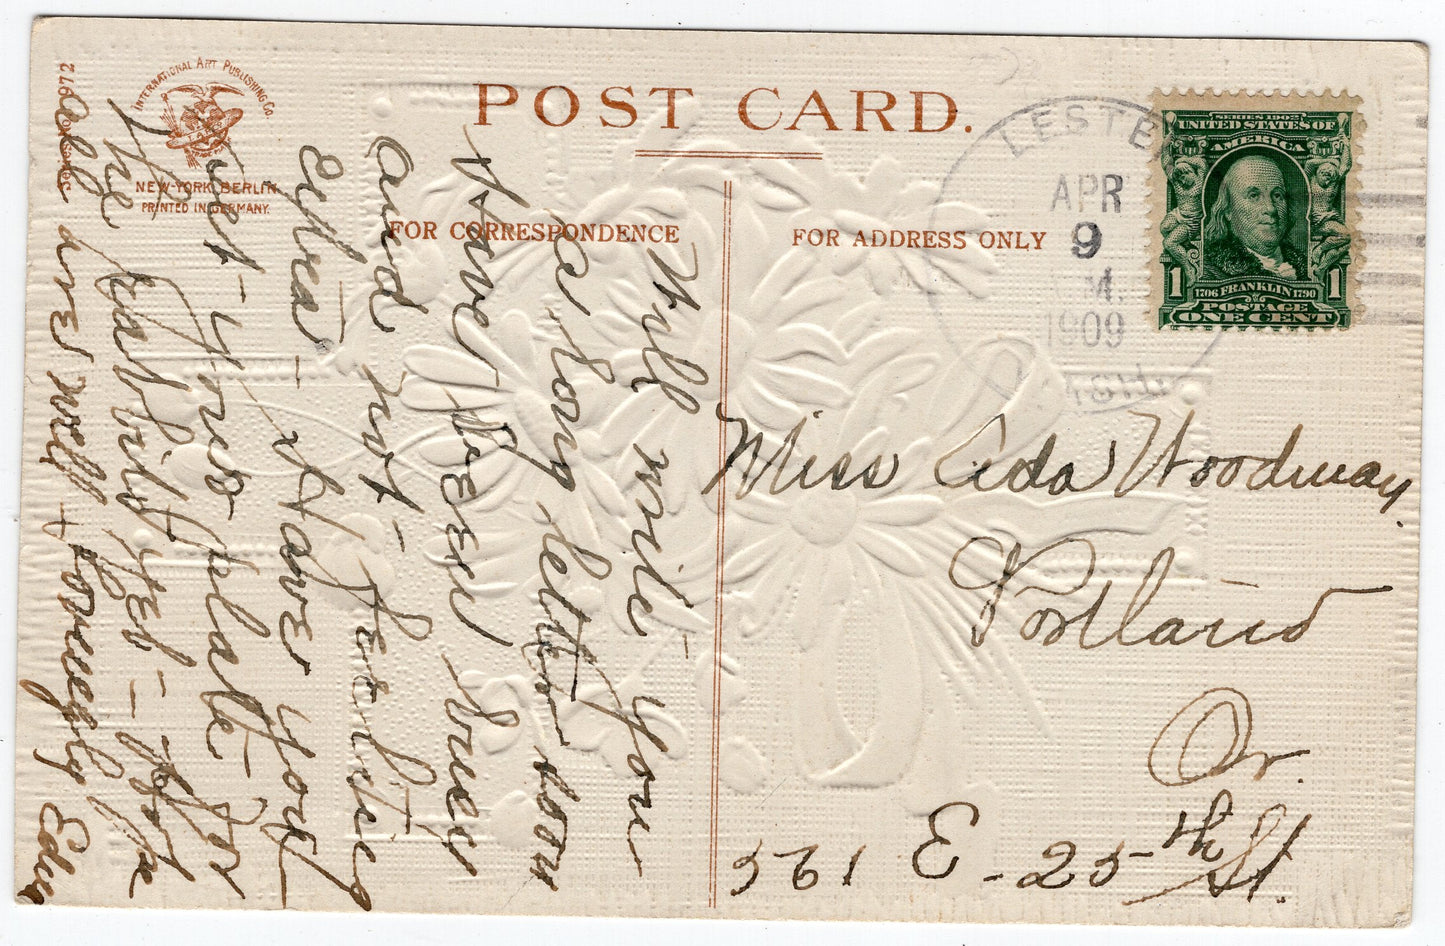 POST CARD.
INTERNATIONAL ART PUBLISHING CO.
NEW-YORK BERLIN
PRINTED IN GERMANY.
FOR CORRESPONDENCE
FOR ADDRESS ONLY
LESTE
APR
9
M.
1909
SERIES 1902
UNITED STATES OF
AMERICA
1 1
1706 FRANKLIN 1790
POSTAGE
ONE CENT
Will write you
a long letter soon
Have been busy
and not feeling
Extra - Have you
Set your plate for
The Rabbits yet - For
The
all are well + Lovingly Edna
Miss Ada Woodway.
Portland
Or.
561 E - 25th St.